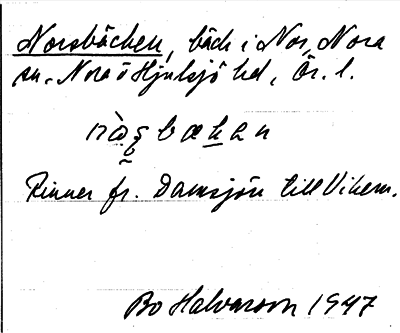 Norsbäcken, bäck i Nor, Nora
sn. Nora o Hjulsjö hd, Ör. l.
Rinner fr. Damsjön till Vikern.
Bo Halvarson 1947